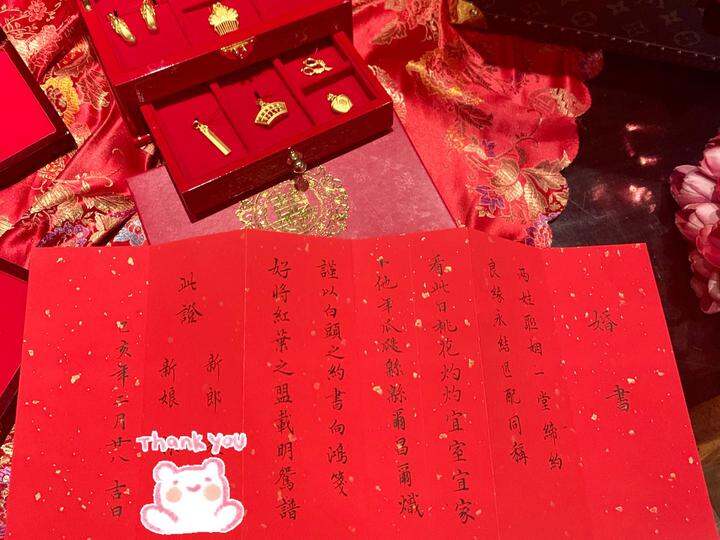 婚書
兩姓聯姻一堂締約
良緣永結匹配同稱
看此日桃花灼灼宜室宜家
卜他年瓜瓞緜緜爾昌爾熾
謹以白頭之約書向鴻箋
好將紅葉之盟載明鴛譜
此證
新郎
新娘
己亥年二月廿八 吉日
Thank you